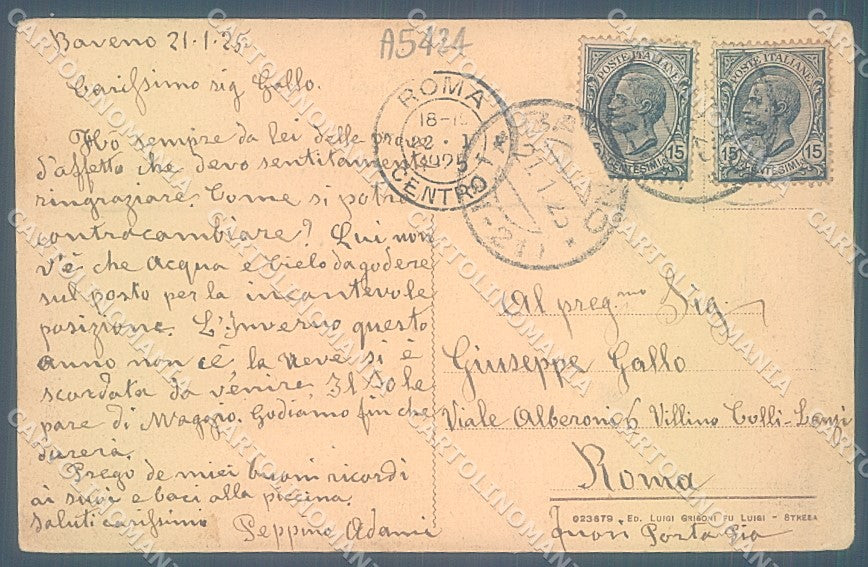 Baveno 21·1·25
A5424
Carissimo sig Gallo.
Ho sempre da lei delle prove
d'affetto che devo sentitamente
ringraziare. Come si potrà
contracambiare? Qui non
v'è che Acqua e Cielo da godere
sul posto per la incantevole
posizione. L'Inverno questo
anno non c'é, la neve si è
scordata da venire. Il Sole
pare di Maggio. Godiamo fin che
durerà.
Prego de miei buoni ricordi
ai suoi e baci alla piccina.
Saluti carissimi
Peppino Adami
ROMA
18-19
22·I
1925
CENTRO
BAVENO
21.1.25
POSTE ITALIANE
15 CENTESIMI 15
POSTE ITALIANE
15 CENTESIMI 15
Al preg.mo Sig.
Giuseppe Gallo
Viale Alberoni 6 Villino Colli-Lanzi
Roma
Fuori Porta Pia
023679 - ED. LUIGI GRISONI FU LUIGI - STRESA
CARTOLINOMANIA